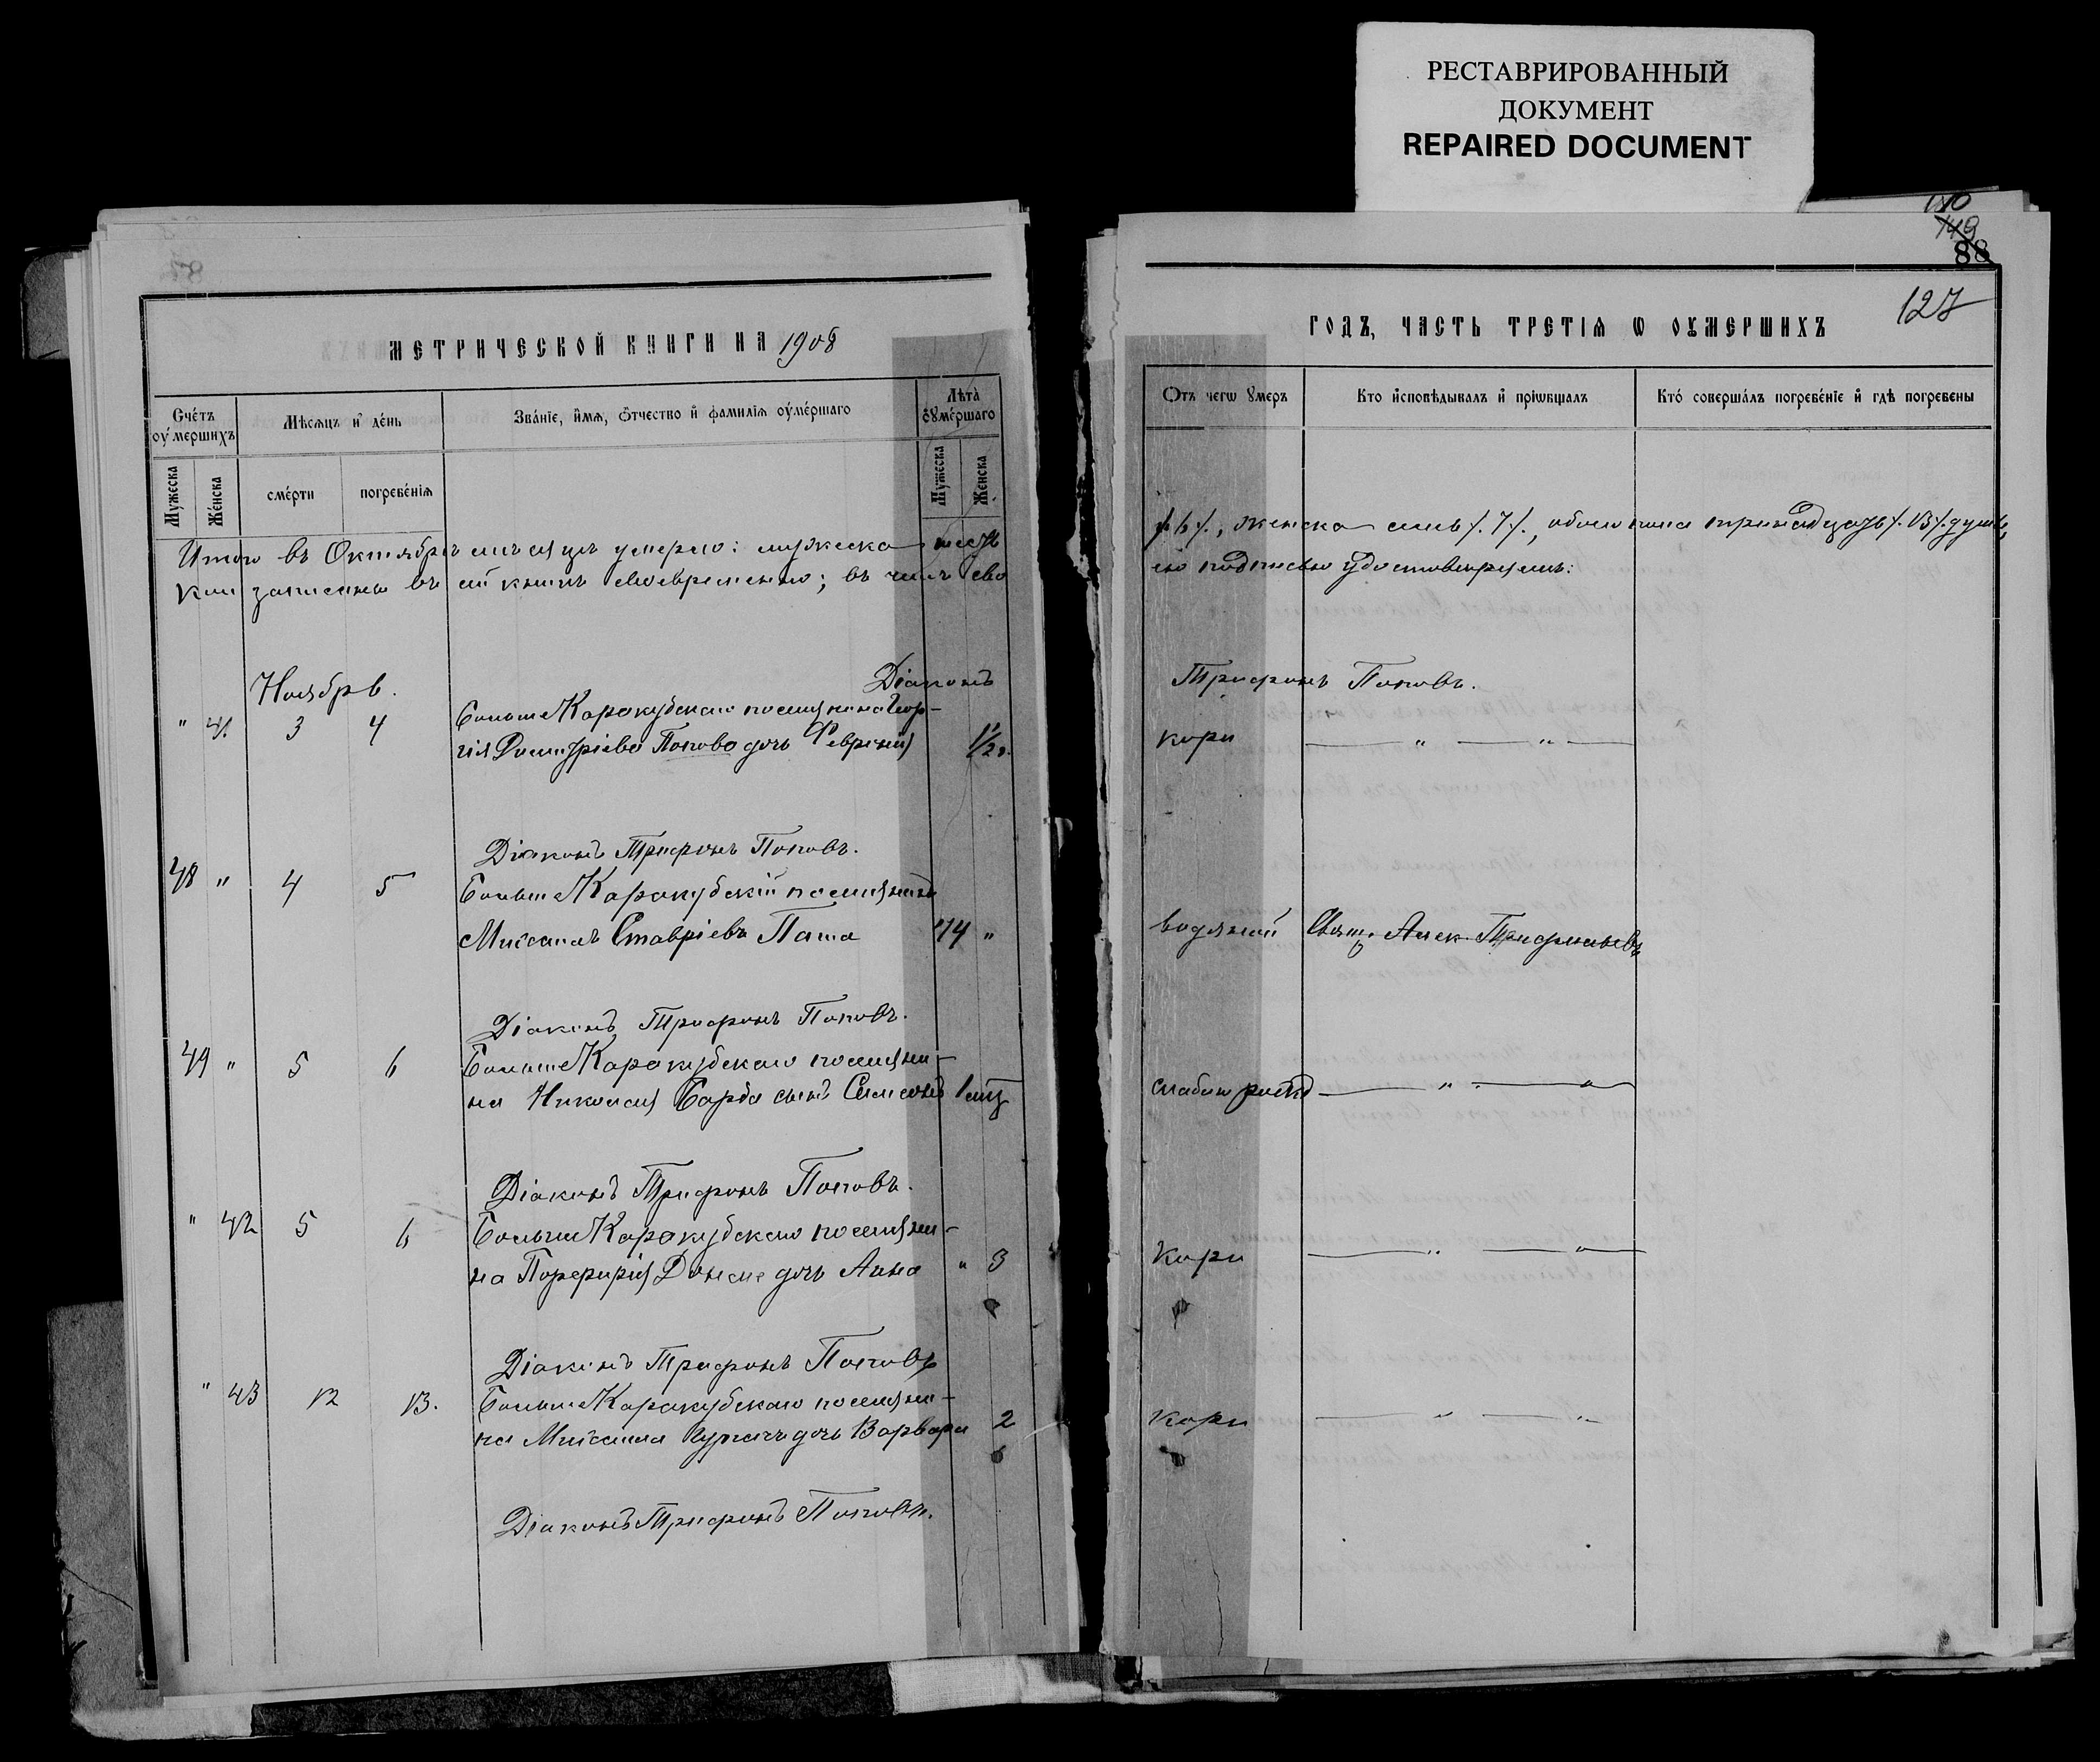 РЕСТАВРИРОВАННЫЙ
ДОКУМЕНТ
REPAIRED DOCUMENT
МЕТРИЧЕСКОЙ КНИГИ НА 1908
Счетъ оумершихъ
Мѣсяцъ и день
Званіе, имя, отчество и фамилія оумершаго
Лѣта оумершаго
Мужеска
Женска
смерти
погребенія
Мужеска
Женска
Итого въ Октябрѣ мѣсяцѣ умерло: мужеска шесть
кои записаны въ сей книгѣ своевременно; въ чемъ сво
Ноябрь.
Діаконъ
" 41 3 4 Больше Каракубскаго поселянина Геор-
гія Димитріева Попова дочь Февронія 1/2 г.
Діаконъ Трифонъ Поповъ.
48 " 4 5 Больше Каракубскій поселянинъ
Михаилъ Ставріевъ Паша 74 "
Діаконъ Трифонъ Поповъ.
49 " 5 6 Больше Каракубскаго поселяни-
на Николая Барда сынъ Симеонъ 1 мц
Діаконъ Трифонъ Поповъ.
" 42 5 6 Больше Каракубскаго поселяни-
на Порфирія дочь Анна " 3
Діаконъ Трифонъ Поповъ
" 43 12 13. Больше Каракубскаго поселяни-
на Михаила дочь Варвара 2
Діаконъ Трифонъ Поповъ.
149
88
127
ГОДЪ, ЧАСТЬ ТРЕТІЯ Ѡ ОУМЕРШИХЪ
Отъ чегѡ умеръ
Кто исповѣдывалъ и пріѡбщалъ
Кто совершалъ погребеніе и гдѣ погребены
/.6/., женска семь /.7/., обоего пола тринадцать /.13/. душъ,
ею подписью удостовѣряемъ:
Трифонъ Поповъ.
кори — " — " —
водянки Свящ. Алек. Трифильевъ
слабъ рожд — " — "
Кори — " — "
кори — " — "